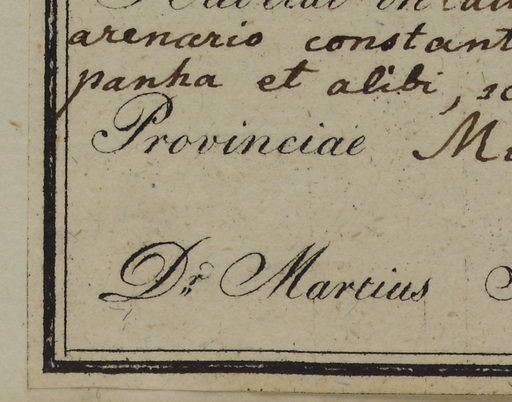 Habitat in
arenario constant
panha et alibi, so
Provinciae Mi
Dr. Martius